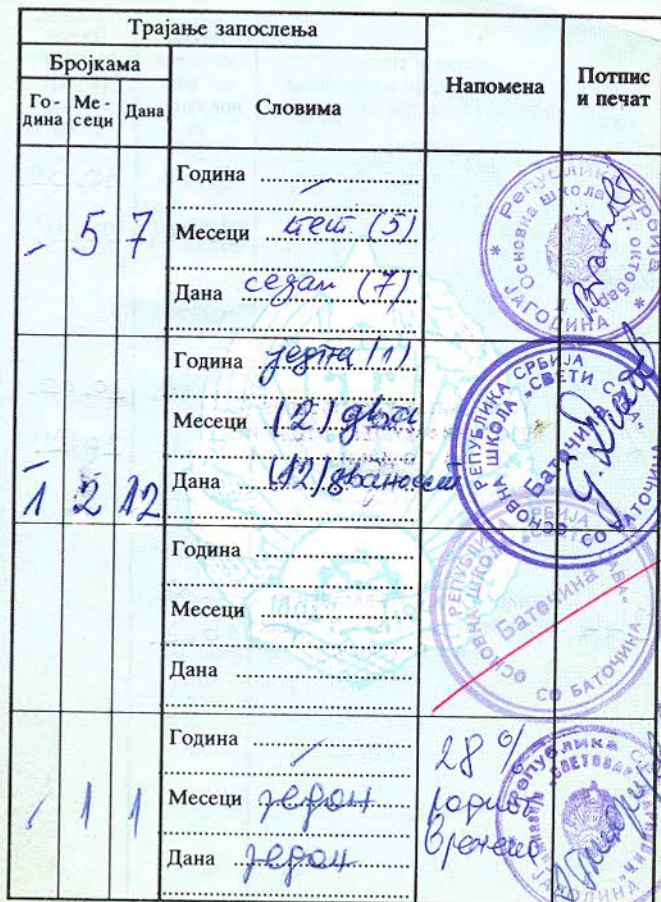 Трајање запослења
Бројкама
Словима
Напомена
Потпис
и печат
Го-
дина
Ме-
сеци
Дана
- 5 7
Година -
Месеци пет (5)
Дана седам (7)
Република Србија
Основна школа "17. октобар"
ЈАГОДИНА
1 2 12
Година једна (1)
Месеци (2) два
Дана (12) дванаест
РЕПУБЛИКА СРБИЈА
ОСНОВНА ШКОЛА "СВЕТИ САВА"
Баточина
СО БАТОЧИНА
Година
Месеци
Дана
РЕПУБЛИКА СРБИЈА
ОСНОВНА ШКОЛА "СВЕТИ САВА"
Баточина
СО БАТОЧИНА
/ 1 1
Година /
Месеци један
Дана један
28 %
радног
времена
Република
ЈАГОДИНА